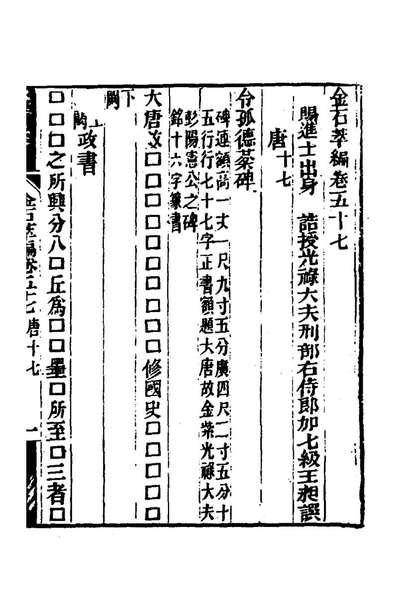 金石萃編卷五十七
賜進士出身　誥授光祿大夫刑部右侍郎加七級王昶譔
唐十七
令狐德棻碑
碑連額高一丈一尺九寸五分廣四尺二寸五分十
五行行七十七字正書額題大唐故金紫光祿大夫
彭陽憲公之碑
銘十六字篆書
大唐故□□□□□□□□□□修國史□□□□
下闕
上闕政書
□□□之所興分八□丘爲□□墨□所至□三者□
金石萃編卷五十七　唐十七　一